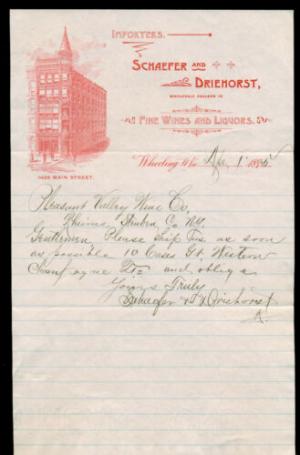 IMPORTERS.
SCHAEFER AND
DRIEHORST,
WHOLESALE DEALERS IN
FINE WINES AND LIQUORS.
1425 MAIN STREET.
Wheeling, W.Va. Apr 1" 1895
Pleasant Valley Wine Co.
Rheims, Steuben Co. N.Y.
Gentlemen Please Ship Us as soon
as possible 10 Cases Gt. Western
Champagne and oblige
Yours Truly
Schaefer & Driehorst